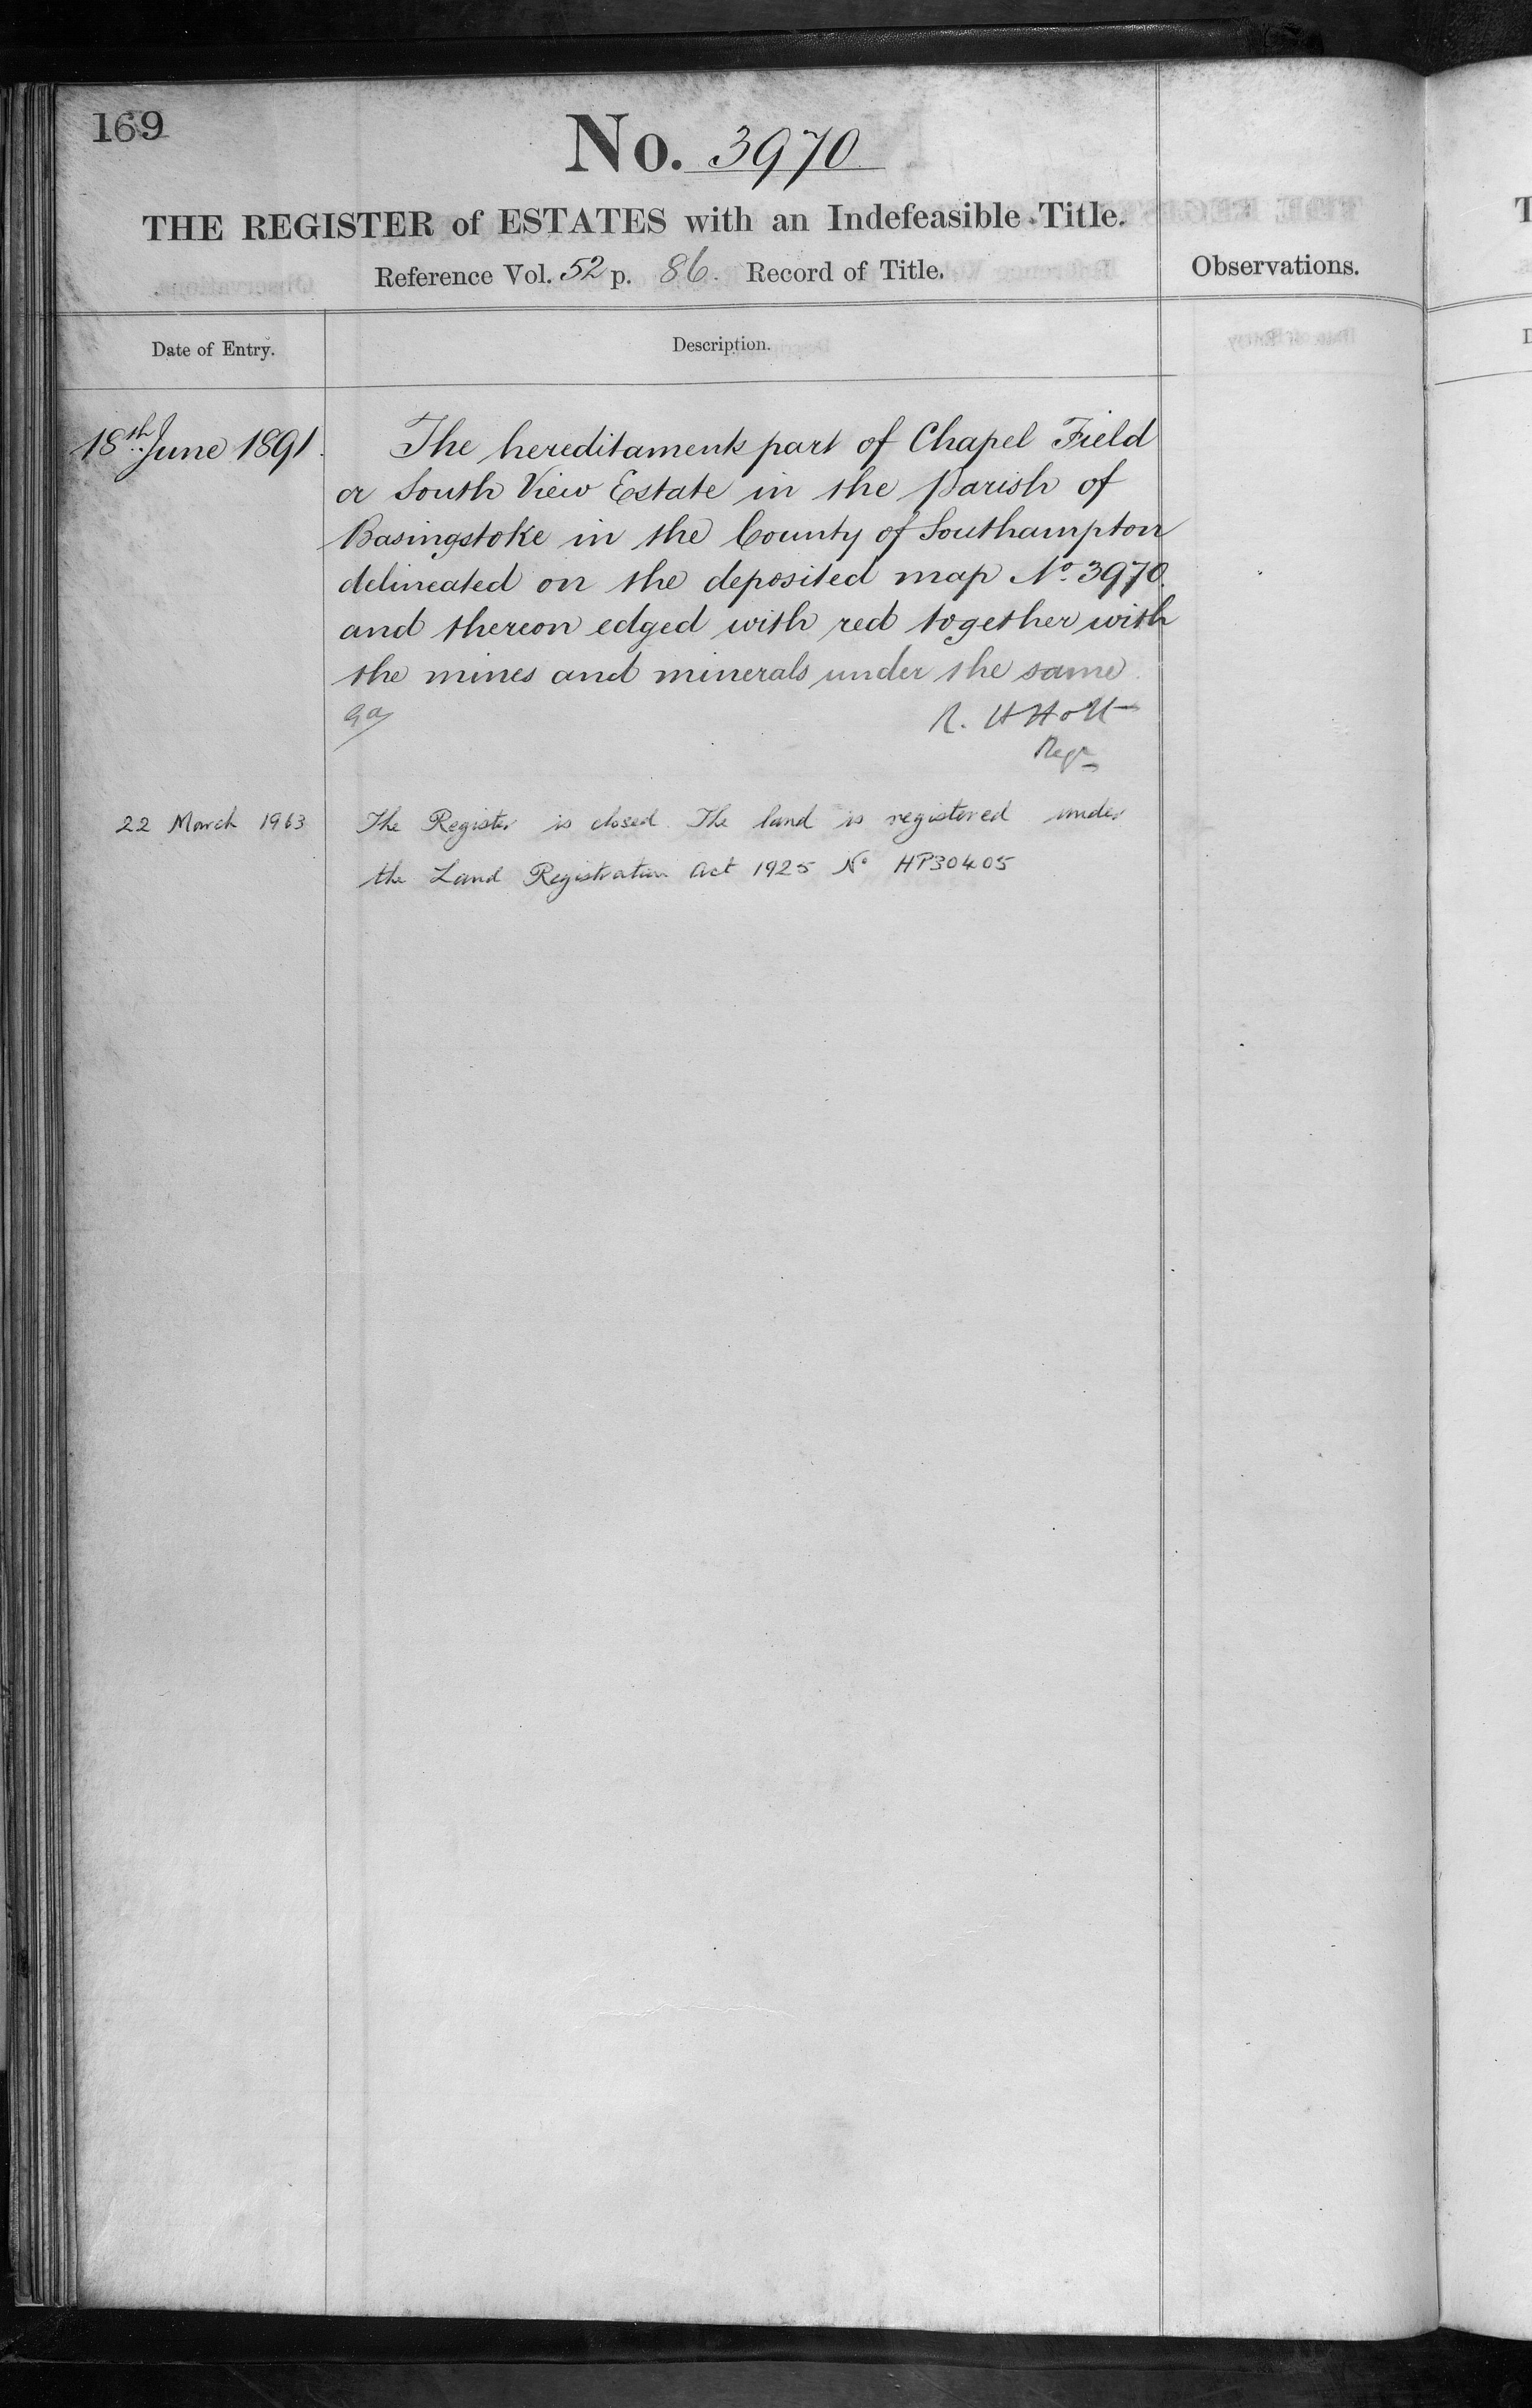 169
No. 3970
THE REGISTER of ESTATES with an Indefeasible Title.
Reference Vol. 52 p. 86. Record of Title.
Observations.
Date of Entry.
Description.
18th June 1891.
The hereditaments part of Chapel Field
or South View Estate in the Parish of
Basingstoke in the County of Southampton
delineated on the deposited map No. 3970.
and thereon edged with red together with
the mines and minerals under the same.
R. H Holt
Regr
22 March 1963
The Register is closed. The land is registered under
the Land Registration Act 1925 No HP30405